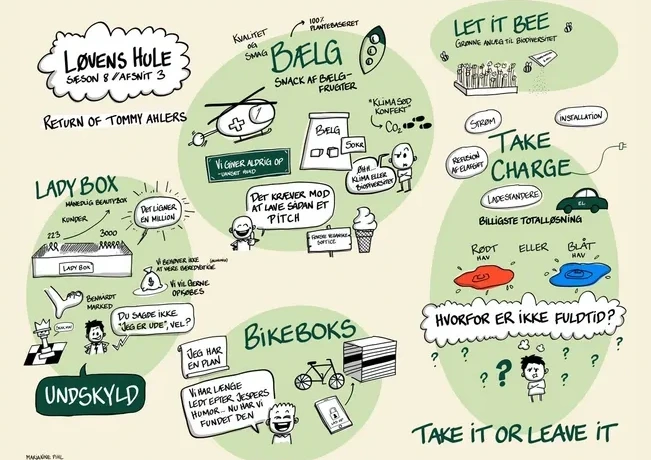 LØVENS HULE
SÆSON 8 // AFSNIT 3
RETURN OF TOMMY AHLERS
KVALITET
OG
SMAG
100%
PLANTEBASERET
BÆLG
SNACK AF BÆLG-
FRUGTER
BÆLG
50KR
"KLIMASØD
KONFEKT"
CO2
VI GIVER ALDRIG OP
ØHH..
KLIMA ELLER
BIODIVERSITET
DET KRÆVER MOD
AT LAVE SÅDAN ET
PITCH
FØRSTE VEGANSKE
SOFTICE
LET IT BEE
GRØNNE ANLÆG TIL BIODIVERSITET
STRØM
INSTALLATION
TAKE
CHARGE
REFUSION
AF ELAFGIFT
LADESTANDERE
EL
BILLIGSTE TOTALLØSNING
RØDT
HAV
ELLER
BLÅT
HAV
HVORFOR ER IKKE FULDTID?
? ? ? ? ? ? ? ?
TAKE IT OR LEAVE IT
LADY BOX
MÅNEDLIG BEAUTYBOX
KUNDER
223
3000
DET LIGNER
EN MILLION
LADY BOX
VI BEHØVER IKKE
AT VÆRE BÆREDYGTIGE
VI VIL GERNE
OPKØBES
BENHÅRDT
MARKED
DU SAGDE IKKE
"JEG ER UDE", VEL?
UNDSKYLD
BIKEBOKS
JEG HAR
EN PLAN
VI HAR LÆNGE
LEDT EFTER JESPERS
HUMOR... NU HAR VI
FUNDET DEN
MARIANNE PIHL